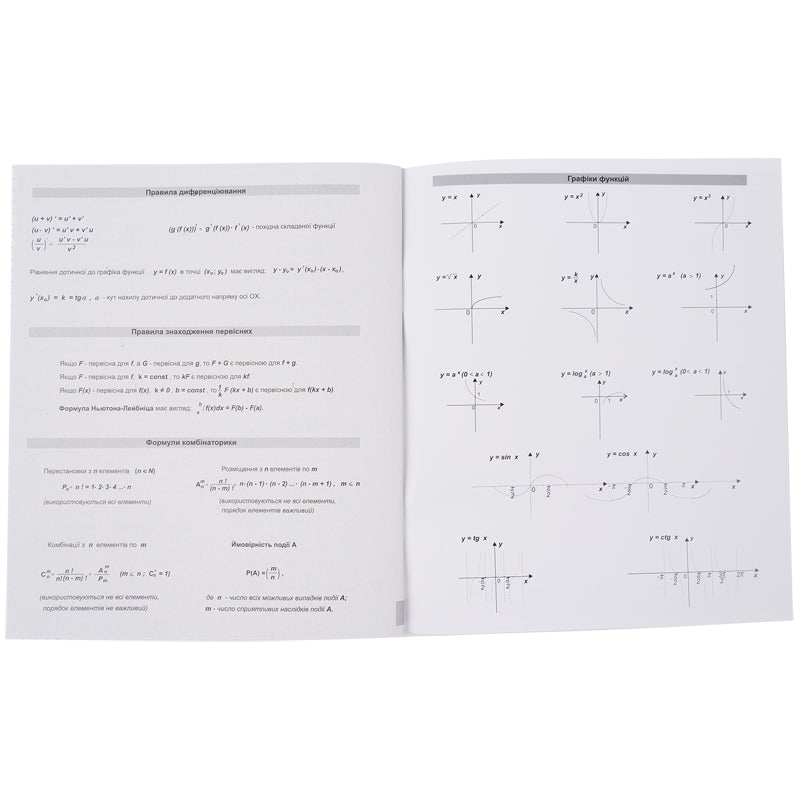 Правила диференціювання
(u + v) ' = u' + v'
(u - v) ' = u' v + v' u
(u/v)' = u' v - v' u / v²
(g (f (x)))' = g' (f (x)) · f ' (x) - похідна складеної функції
Рівняння дотичної до графіка функції y = f (x) в точці (x₀ ; y₀) має вигляд: y - y₀ = y '(x₀) · (x - x₀) ,
y '(x₀) = k = tg α , α - кут нахилу дотичної до додатного напряму осі OX.
Правила знаходження первісних
Якщо F - первісна для f, а G - первісна для g, то F + G є первісною для f + g.
Якщо F - первісна для f, k = const , то kF є первісною для kf.
Якщо F(x) - первісна для f(x), k ≠ 0 , b = const , то 1/k F (kx + b) є первісною для f(kx + b).
Формула Ньютона-Лейбніца має вигляд: ₐ∫ᵇ f(x)dx = F(b) - F(a).
Формули комбінаторики
Перестановки з n елементів (n ∈ N)
Pₙ = n ! = 1· 2· 3· 4 ...· n
(використовуються всі елементи)
Розміщення з n елементів по m
Aₙᵐ = n ! / (n - m) ! = n· (n - 1) · (n - 2) ... · (n - m + 1) , m ⩽ n
(використовуються не всі елементи,
порядок елементів важливий)
Комбінації з n елементів по m
Cₙᵐ = n ! / n! (n - m) ! = Aₙᵐ / Pₘ (m ⩽ n ; Cₙⁿ = 1)
(використовуються не всі елементи,
порядок елементів не важливий)
Ймовірність події A
P(A) = (m/n) ,
де n - число всіх можливих випадків події A;
m - число сприятливих наслідків події A.
Графіки функцій
y = x y 0 x
y = x² y 0 x
y = x³ y 0 x
y = √x y 0 x
y = k/x y 0 x
y = aˣ (a > 1) y 1 0 x
y = aˣ (0 < a < 1) y 0 x
y = logₐˣ (a > 1) y 0 1 x
y = logₐˣ (0 < a < 1) y 0 1 x
y = sin x y 0 π/2 x
y = cos x y 0 π/2 x
y = tg x y 0 π/2 x
y = ctg x y 0 π/2 π 2π x